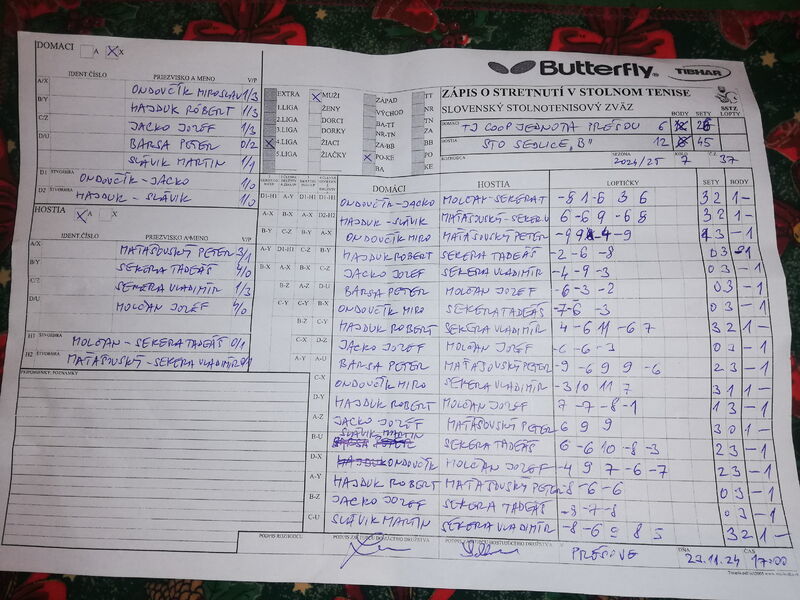 DOMÁCI A X
Butterfly TIBHAR
IDENT.ČÍSLO PRIEZVISKO A MENO V/P
ZÁPIS O STRETNUTÍ V STOLNOM TENISE
SLOVENSKÝ STOLNOTENISOVÝ ZVÄZ
SSTZ
BODY SETY LOPTY
A/X ONDOVČÍK MIROSLAV 1/3
B/Y HAJDUK RÓBERT 1/3
C/Z JACKO JOZEF 1/3
D/U BARSA PETER 0/2
SLÁVIK MARTIN 1/1
D1 ŠTVORHRA ONDOVČÍK - JACKO 1/0
D2 HAJDUK - SLÁVIK 1/0
EXTRA MUŽI ZÁPAD TT
1.LIGA ŽENY VÝCHOD NR
2.LIGA DORCI BA-TT TN
3.LIGA DORKY NR-TN ZA
4.LIGA ŽIACI ZA-BB
5.LIGA ŽIAČKY PO-KE
BA
DOMÁCI TJ COOP JEDNOTA PREŠOV 6 26
HOSTIA STO SEDLICE "B" 12 45
ROZHODCA SEZÓNA 2024/25 7 37
HOSTIA A X
IDENT.ČÍSLO PRIEZVISKO A MENO V/P
A/X MAŤAŠOVSKÝ PETER 3/1
B/Y SEKERA TADEÁŠ 4/0
C/Z SEKERA VLADIMÍR 1/3
D/U MOLČAN JOZEF 4/0
H1 ŠTVORHRA MOLČAN - SEKERA TADEÁŠ 0/1
H2 ŠTVORHRA MAŤAŠOVSKÝ - SEKERA VLADIMÍR 0/1
PRIPOMIENKY, POZNÁMKY
DOMÁCI HOSTIA LOPTIČKY SETY BODY
ONDOVČÍK - JACKO MOLČAN - SEKERA T -8 1 -6 3 6 3 2 1 -
HAJDUK - SLÁVIK MAŤAŠOVSKÝ - SEKERA V 6 -6 9 -6 8 3 2 1 -
ONDOVČÍK MIRO MAŤAŠOVSKÝ PETER 3 - 1
HAJDUK RÓBERT SEKERA TADEÁŠ -2 -6 -8 0 3 - 1
JACKO JOZEF SEKERA VLADIMÍR -4 -9 -3 0 3 - 1
BARSA PETER MOLČAN JOZEF -6 -3 -2 0 3 - 1
ONDOVČÍK MIRO SEKERA TADEÁŠ -7 -6 -3 0 3 - 1
HAJDUK RÓBERT SEKERA VLADIMÍR 4 -6 11 -6 7 3 2 1 -
JACKO JOZEF MOLČAN JOZEF -6 -6 -3 0 3 - 1
BARSA PETER MAŤAŠOVSKÝ PETER -9 -6 9 9 -6 2 3 - 1
ONDOVČÍK MIRO SEKERA VLADIMÍR -3 10 11 7 3 1 1 -
HAJDUK RÓBERT MOLČAN JOZEF 7 -7 -8 -1 1 3 - 1
JACKO JOZEF MAŤAŠOVSKÝ PETER 6 9 9 3 0 1 -
SLÁVIK MARTIN SEKERA TADEÁŠ 6 -6 10 -8 -3 2 3 - 1
ONDOVČÍK MOLČAN JOZEF -4 9 7 -6 -7 2 3 - 1
HAJDUK RÓBERT MAŤAŠOVSKÝ PETER -8 -6 -6 0 3 - 1
JACKO JOZEF SEKERA TADEÁŠ -8 -7 -8 0 3 - 1
SLÁVIK MARTIN SEKERA VLADIMÍR -8 -6 9 8 5 3 2 1 -
PODPIS ROZHODCU PODPIS ZÁSTUPCU DOMÁCEHO DRUŽSTVA PODPIS ZÁSTUPCU HOSŤUJÚCEHO DRUŽSTVA PREŠOVE DŇA 22.11.24 ČAS 17:00